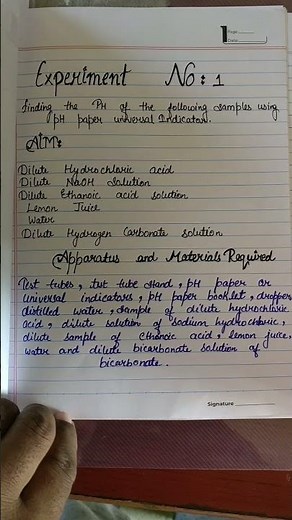 1 Page:
Date:
Experiment No: 1
Finding the PH of the following samples using
pH paper universal Indicator.
AIM:
Dilute Hydrochloric acid
Dilute NaOH Solution
Dilute Ethanoic acid solution
Lemon Juice
Water
Dilute Hydrogen Carbonate solution
Apparatus and Materials Required
Test tubes, test tube stand, pH paper or
universal indicators, pH paper booklet, droppers
distilled water, sample of dilute hydrochloric
acid, dilute solution of sodium hydrochloric,
dilute sample of ethanoic acid, lemon juice,
water and dilute bicarbonate solution of
bicarbonate.
Signature